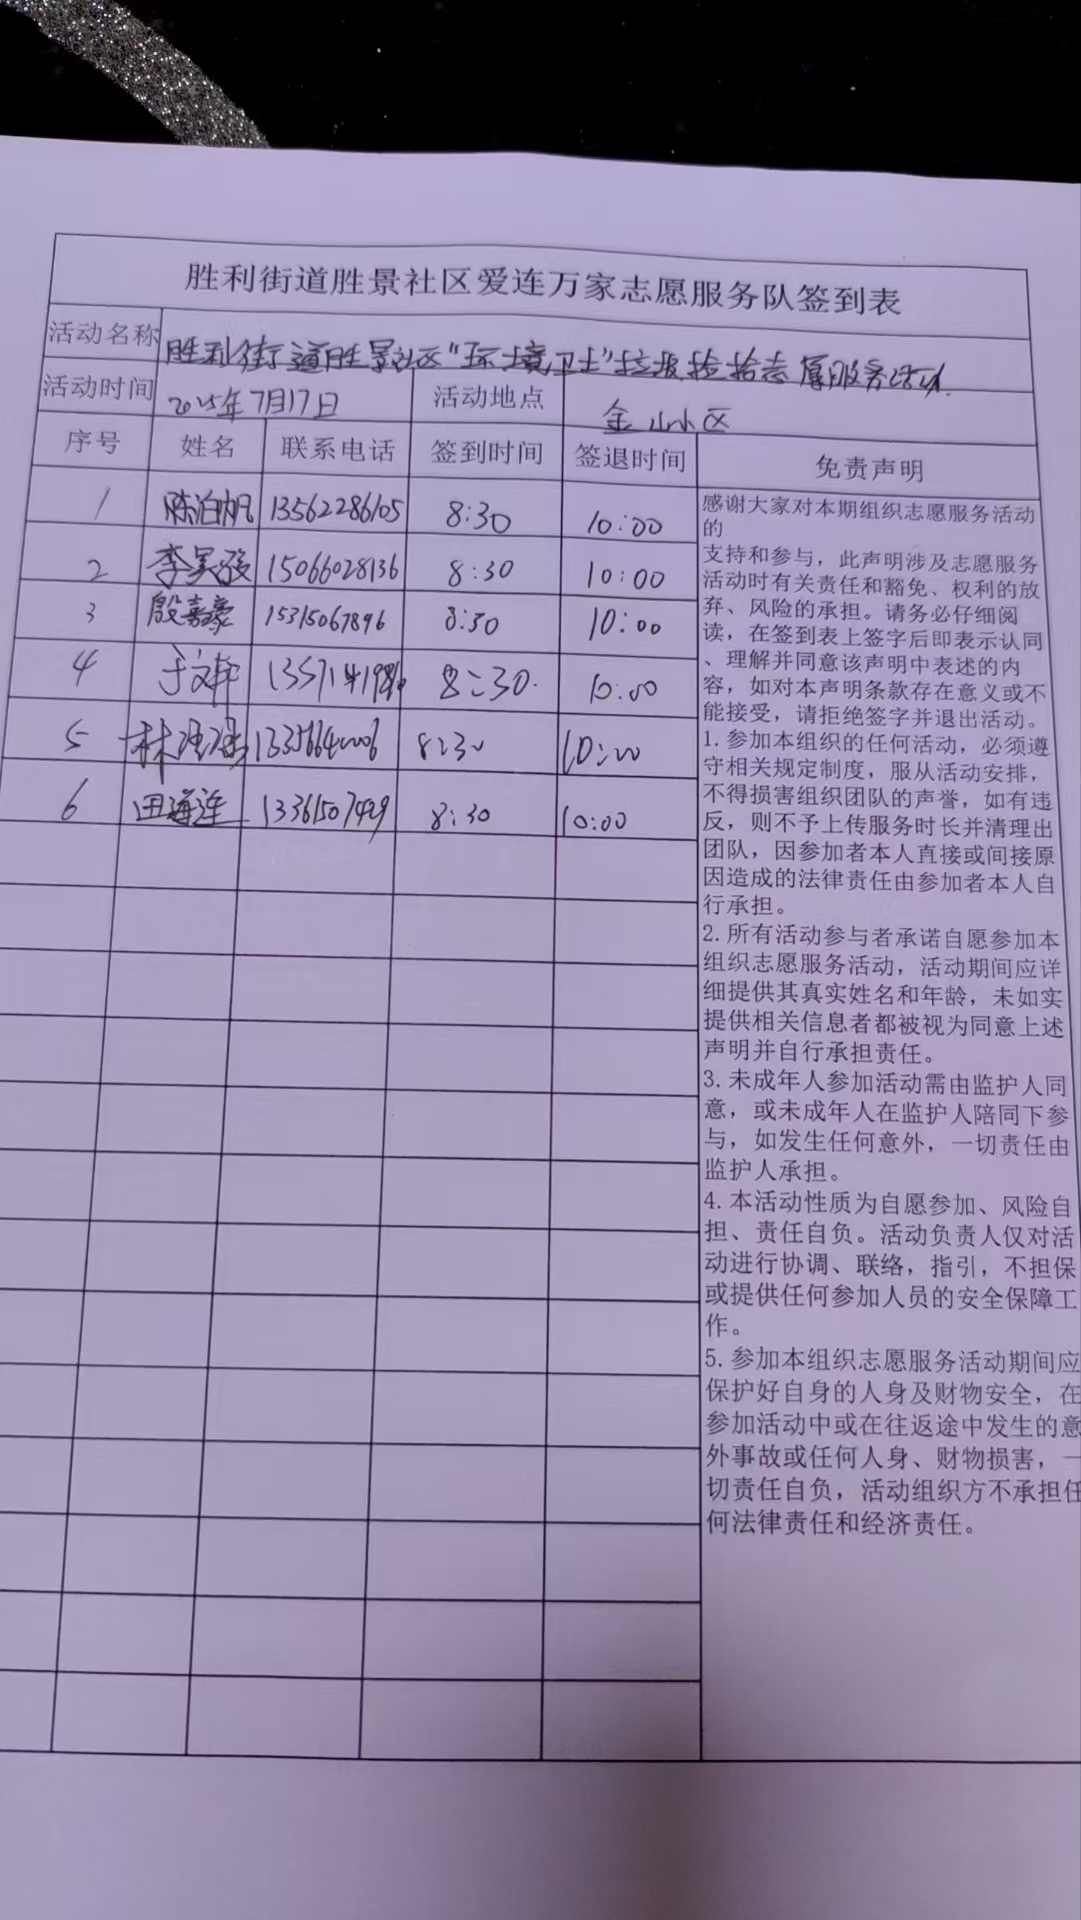 胜利街道胜景社区爱连万家志愿服务队签到表
活动名称 胜利街道胜景社区"环境卫士"垃圾捡拾志愿服务活动
活动时间 2025年7月17日 活动地点 金山小区
序号 姓名 联系电话 签到时间 签退时间 免责声明
1 陈泊帆 13562286105 8:30 10:00
2 李昊强 15066028136 8:30 10:00
3 殷嘉豪 15315067896 8:30 10:00
4 于文轩 8:30. 10:00
5 林 8:30 10:00
6 田海连 13361507429 8:30 10:00
感谢大家对本期组织志愿服务活动
的
支持和参与，此声明涉及志愿服务
活动时有关责任和豁免、权利的放
弃、风险的承担。请务必仔细阅
读，在签到表上签字后即表示认同
、理解并同意该声明中表述的内
容，如对本声明条款存在意义或不
能接受，请拒绝签字并退出活动。
1.参加本组织的任何活动，必须遵
守相关规定制度，服从活动安排，
不得损害组织团队的声誉，如有违
反，则不予上传服务时长并清理出
团队，因参加者本人直接或间接原
因造成的法律责任由参加者本人自
行承担。
2.所有活动参与者承诺自愿参加本
组织志愿服务活动，活动期间应详
细提供其真实姓名和年龄，未如实
提供相关信息者都被视为同意上述
声明并自行承担责任。
3.未成年人参加活动需由监护人同
意，或未成年人在监护人陪同下参
与，如发生任何意外，一切责任由
监护人承担。
4.本活动性质为自愿参加、风险自
担、责任自负。活动负责人仅对活
动进行协调、联络，指引，不担保
或提供任何参加人员的安全保障工
作。
5.参加本组织志愿服务活动期间应
保护好自身的人身及财物安全，在
参加活动中或在往返途中发生的意
外事故或任何人身、财物损害，一
切责任自负，活动组织方不承担任
何法律责任和经济责任。